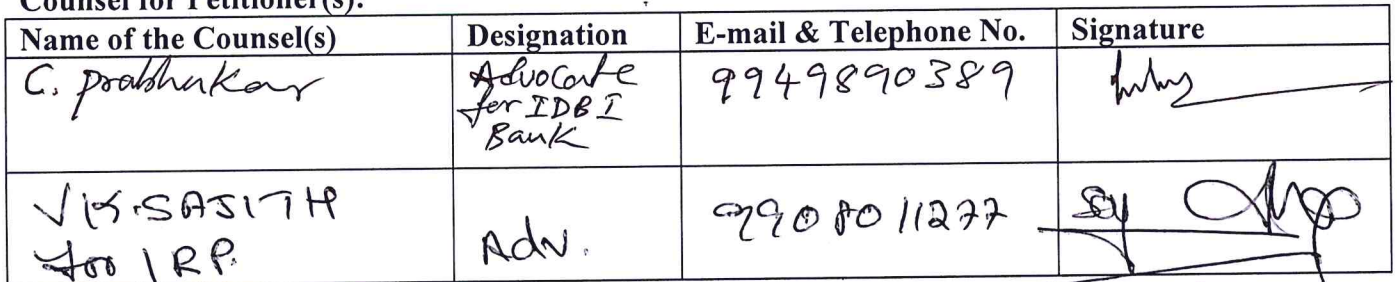 Counsel for Petitioner(s):
Name of the Counsel(s) Designation E-mail & Telephone No. Signature
C. Prabhakar Advocate for IDBI Bank 9949890389
VK. SAJITH for IRP. Adv. 9908011277